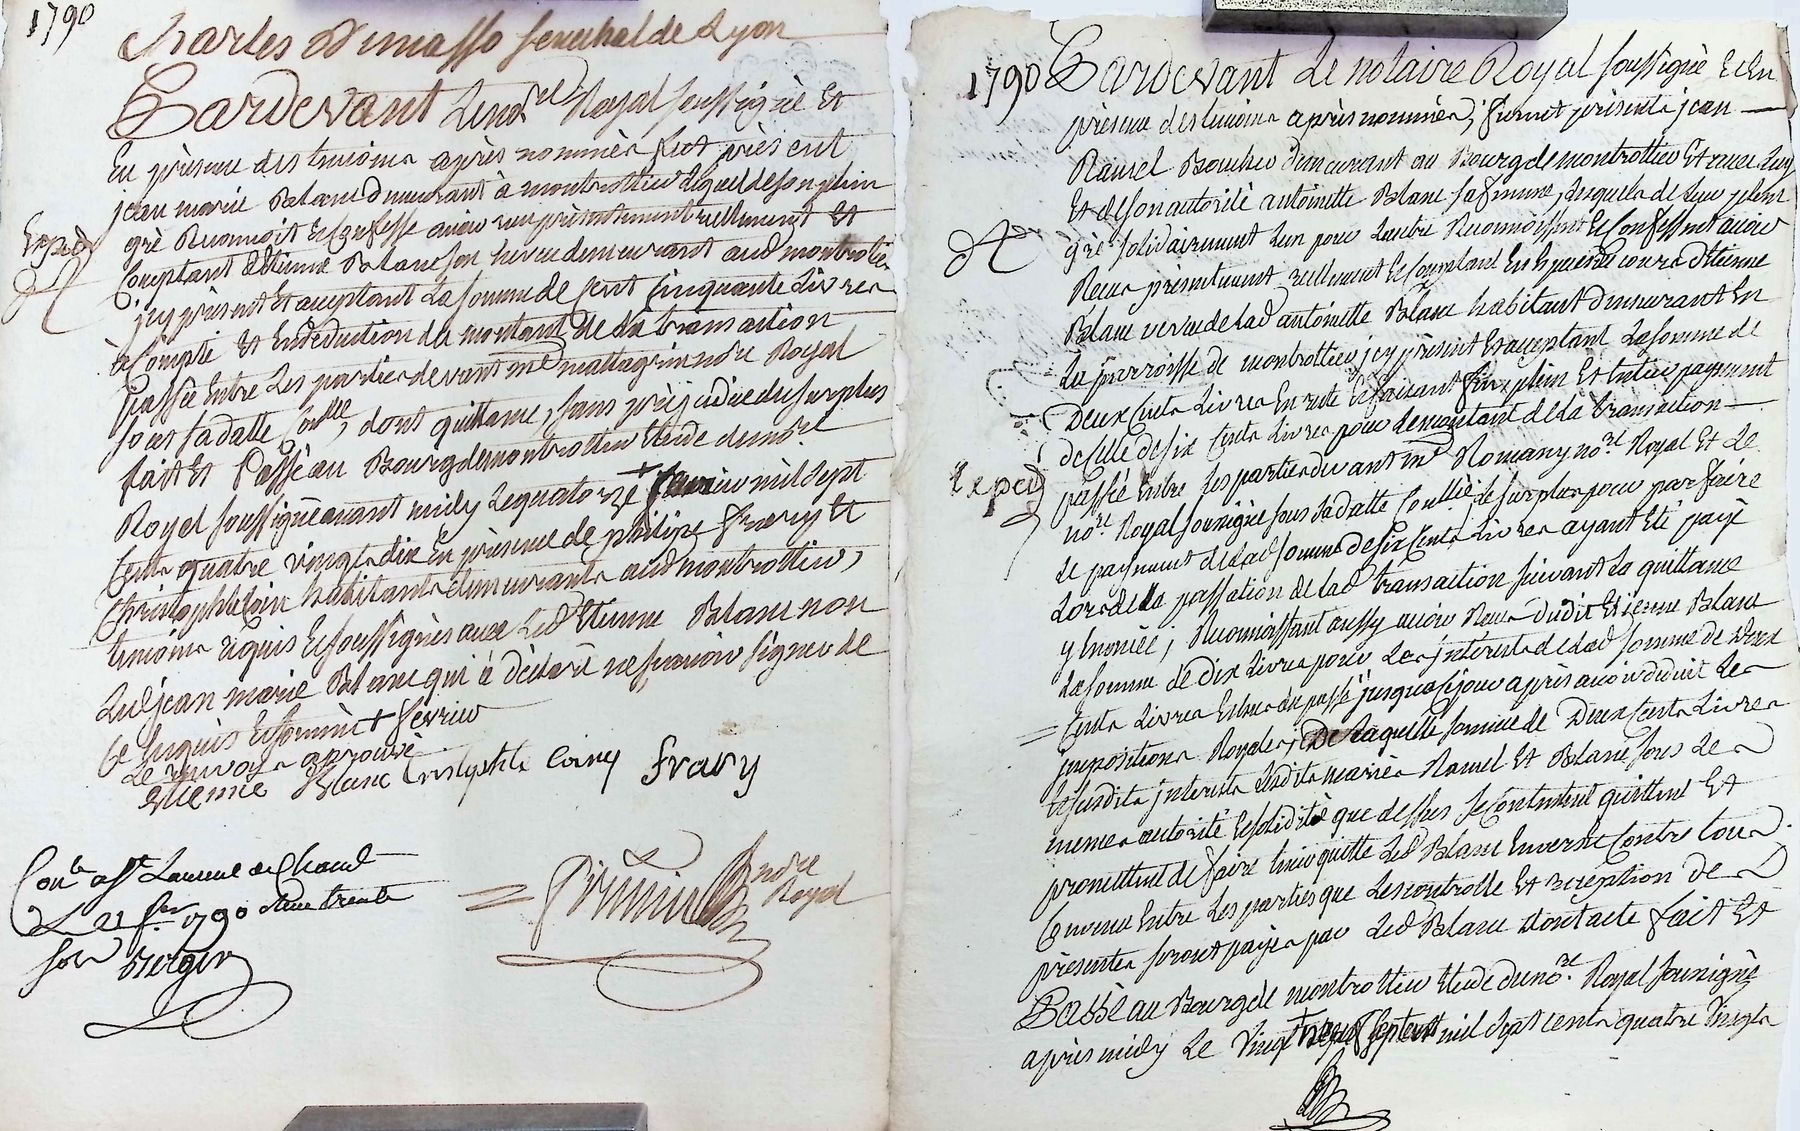 1790
Charles Demasso senechal de Lyon
Pardevant Le no.re Royal soussigné Et
En présence des temoins après nommés fut présent
jean marie Blanc demeurant à montrottier Lequel de son plein
gré Reconnoit Et Confesse avoir reçu présentement réellement Et
Expéd
Comptant d'Etienne Blanc son neveu demeurant aud montrottier
jcy présent Et acceptant La somme de Cent Cinquante Livres
à Compte Et En deduction du montant de la transaction
passée Entre Les parties devant me mattagrin no.re Royal
sous sa datte Con.llée, dont quittance, sans préjudice du surplus
fait Et Passé au Bourg de montrottier Etude du no.re
Royal soussigné avant midy Le quatorze + mil sept
Cents quatre vingts dix En présence de philipe fravry Et
Christophle Coin habitants demeurants aud montrottier,
temoins requis Et soussignés avec Led Etienne Blanc non
Led jean marie Blanc qui à déclaré ne savoir signer de
Ce Enquis Et sommé + février
Le renvoy aprouvé
Etienne Blanc Cristophle Coing fravry
Con.lé à St Laurent de Chamt
Le 21 fer 1790 Reçu trente
sols Berger
no.re
Royal
1790 Pardevant Le notaire Royal soussigné Et En
présence des temoins après nommés, furent présents jean
Ramel Boucher demeurant au Bourg de montrottier Et avec Luy
Et de son autorité antoinette Blanc sa femme, Lesquels de Leur plein
gré solidairement L'un pour L'autre Reconnoissent Et Confessent avoir
Reçu présentement réellement Et Comptant En Espèces de cours d'Etienne
Blanc neveu de Lad antoinette Blanc habitant demeurant En
La parroisse de montrottier, jcy présent Et acceptant La somme de
Deux Cents Livres En reste Et faisant fin plein Et Entier payement
de Celle de six Cents Livres pour le montant de la transaction
Expéd
passée Entre Les parties devant me Romany no.re Royal Et Le
no.re Royal soussigné sous sa datte Con.llée, Le surplus pour parfaire
Le payement de Lad somme de six Cents Livres ayant Eté payé
Lors de la passation de Lad transaction suivant La quittance
y Enoncée, Reconnoissant aussy avoir Reçu dudit Etienne Blanc
La somme de Dix Livres pour Les jntérêts de Lad somme de Deux
Cents Livres de L'année passé jusqu'à Ce jour après avoir déduit Les
jmpositions Royales, De Laquelle somme de Deux Cents Livres
Et susdits jnterets Lesdits mariés Ramel Et Blanc sous Les
memes autorité Et solidité que dessus se Contentent quittent Et
promettent de faire tenir quitte Led Blanc Envers Et Contre tous.
Convenu Entre Les parties que Les controlle Et expédition des
présentes seront payés par Led Blanc Dont acte fait Et
Passé au Bourg de montrottier Etude du no.re Royal soussigné
après midy Le Vingt neuf septembre mil sept cents quatre Vingts